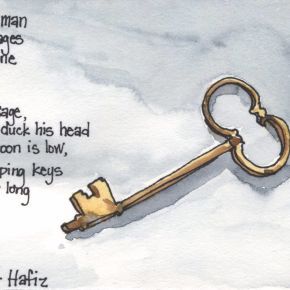 man
ages
ne
age,
duck his head
oon is low,
ping keys
long
- Hafiz